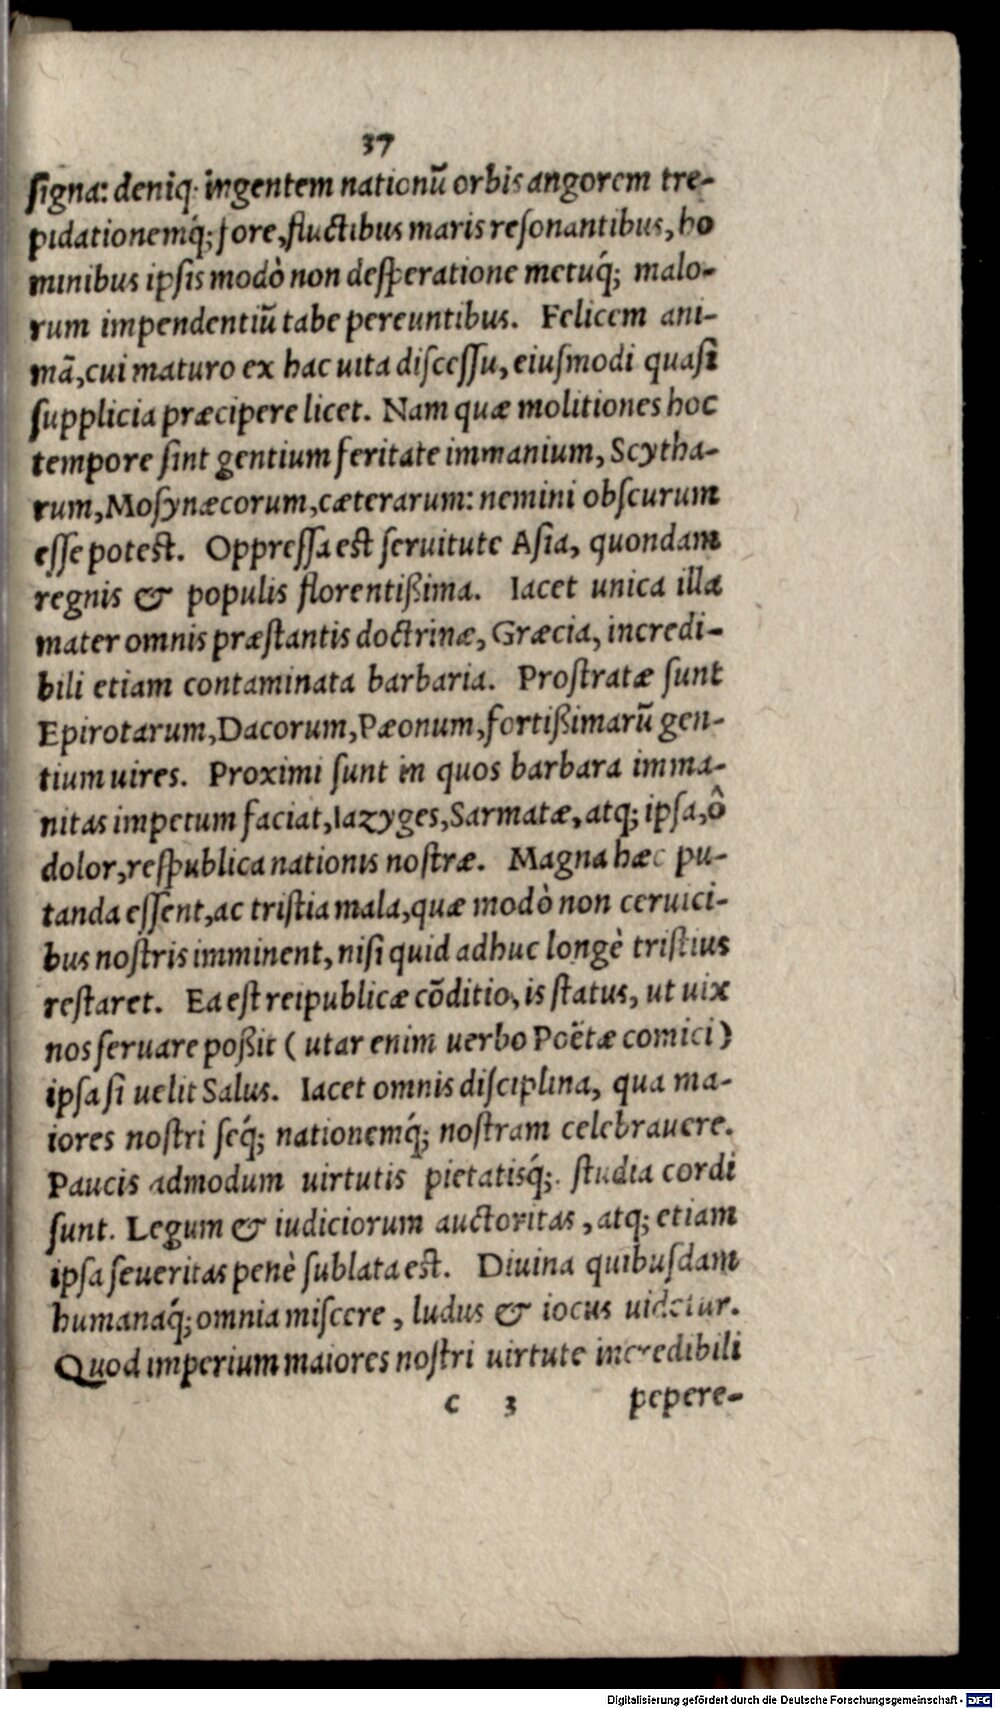 37
signa: deniq; ingentem nationū orbis angorem tre-
pidationemq́; fore, fluctibus maris resonantibus, ho
minibus ipsis modò non desperatione metuq́; malo-
rum impendentiū tabe pereuntibus. Felicem ani-
mā, cui maturo ex hac uita discessu, eiusmodi quasi
supplicia præcipere licet. Nam quæ molitiones hoc
tempore sint gentium feritate immanium, Scytha-
rum, Mosynæcorum, cæterarum: nemini obscurum
esse potest. Oppressa est seruitute Asia, quondam
regnis & populis florentißima. Iacet unica illa
mater omnis præstantis doctrinæ, Græcia, incredi-
bili etiam contaminata barbaria. Prostratæ sunt
Epirotarum, Dacorum, Pæonum, fortißimarū gen-
tium uires. Proximi sunt in quos barbara imma-
nitas impetum faciat, Iazyges, Sarmatæ, atq; ipsa, ô
dolor, respublica nationis nostræ. Magna hæc pu-
tanda essent, ac tristia mala, quæ modò non ceruici-
bus nostris imminent, nisi quid adhuc longè tristius
restaret. Ea est reipublicæ cōditio, is status, ut uix
nos seruare poßit ( utar enim uerbo Poëtæ comici )
ipsa si uelit Salus. Iacet omnis disciplina, qua ma-
iores nostri seq́; nationemq́; nostram celebrauere.
Paucis admodum uirtutis pietatisq́; studia cordi
sunt. Legum & iudiciorum auctoritas, atq; etiam
ipsa seueritas penè sublata est. Diuina quibusdam
humanaq́; omnia miscere, ludus & iocus uidetur.
Quod imperium maiores nostri uirtute incredibili
c 3 pepere-
Digitalisierung gefördert durch die Deutsche Forschungsgemeinschaft - DFG